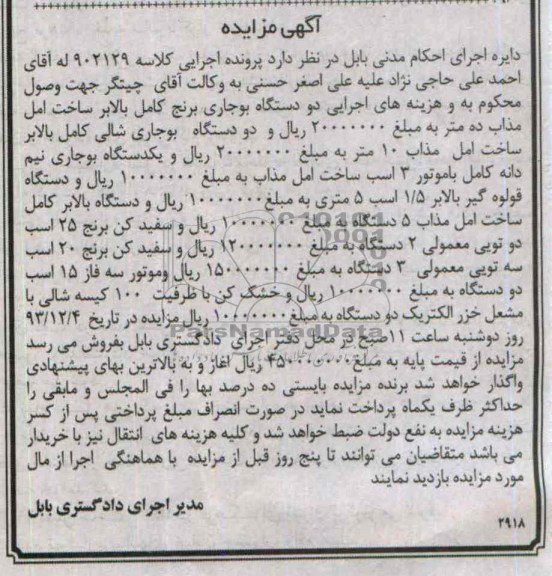 آگهی مزایده
دایره اجرای احکام مدنی بابل در نظر دارد پرونده اجرایی کلاسه ۹۰۲۱۲۹ له آقای
احمد علی حاجی نژاد علیه علی اصغر حسنی به وکالت آقای چیتگر جهت وصول
محکوم به و هزینه های اجرایی دو دستگاه بوجاری برنج کامل بالابر ساخت امل
مذاب ده متر به مبلغ ۲۰۰۰۰۰۰۰ ریال و دو دستگاه بوجاری شالی کامل بالابر
ساخت امل مذاب ۱۰ متر به مبلغ ۲۰۰۰۰۰۰۰ ریال و یکدستگاه بوجاری نیم
دانه کامل باموتور ۳ اسب ساخت امل مذاب به مبلغ ۱۰۰۰۰۰۰۰ ریال و دستگاه
قولوه گیر بالابر ۱/۵ اسب ۵ متری به مبلغ ۱۰۰۰۰۰۰۰ ریال و دستگاه بالابر کامل
ساخت امل مذاب ۵ دستگاه به مبلغ ۱۰۰۰۰۰۰۰ ریال و سفید کن برنج ۲۵ اسب
دو توپی معمولی ۲ دستگاه به مبلغ ۱۲۰۰۰۰۰۰۰ ریال و سفید کن برنج ۲۰ اسب
سه توپی معمولی ۳ دستگاه به مبلغ ۱۵۰۰۰۰۰۰۰ ریال وموتور سه فاز ۱۵ اسب
دو دستگاه به مبلغ ۱۰۰۰۰۰۰۰ ریال و خشک کن با ظرفیت ۱۰۰ کیسه شالی با
مشعل خزر الکتریک دو دستگاه به مبلغ ۱۰۰۰۰۰۰۰۰ ریال مزایده در تاریخ ۹۳/۱۲/۴
روز دوشنبه ساعت ۱۱صبح در محل دفتر اجرای دادگستری بابل بفروش می رسد
مزایده از قیمت پایه به مبلغ ۴۵۰۰۰۰۰۰۰ ریال اغاز و به بالاترین بهای پیشنهادی
واگذار خواهد شد برنده مزایده بایستی ده درصد بها را فی المجلس و مابقی را
حداکثر ظرف یکماه پرداخت نماید در صورت انصراف مبلغ پرداختی پس از کسر
هزینه مزایده به نفع دولت ضبط خواهد شد و کلیه هزینه های انتقال نیز با خریدار
می باشد متقاضیان می توانند تا پنج روز قبل از مزایده با هماهنگی اجرا از مال
مورد مزایده بازدید نمایند
مدیر اجرای دادگستری بابل
۲۹۱۸
ParsNamadData